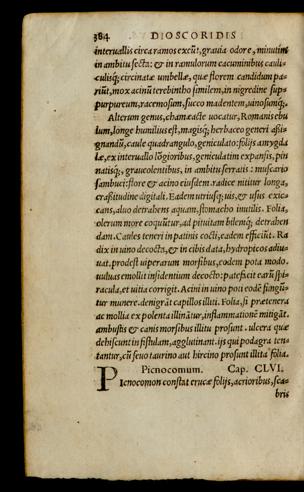 384 DIOSCORIDIS
interuallis circa ramos exeũt, grauia odore, minutim
in ambitu secta: & in ramulorum cacuminibus cauli-
culisq; circinatæ umbellæ, quæ florem candidum pa-
riũt, mox acinũ terebintho similem, in nigredine sup-
purpureum, racemosum, succo madentem, uinosumq;.
Alterum genus, chamæacte uocatur, Romanis ebu
lum, longe humilius est, magisq; herbaceo generi assi-
gnandũ, caule quadrangulo, geniculato: folijs amygda
læ, ex interuallo lõgioribus, geniculatim expansis, pin
natisq;, graueolentibus, in ambitu serratis: muscario
sambuci: flore & acino eiusdem. radice nititur longa,
crassitudine digitali. Eadem utriusq; uis, & usus exic-
cans, aluo detrahens aquam, stomacho inutilis. Folia,
olerum more coquũtur, ad pituitam bilemq; detrahen
dam. Caules teneri in patinis cocti, eadem efficiũt. Ra
dix in uino decocta, & in cibis data, hydropicos adiu-
uat. prodest uiperarum morsibus, eodem pota modo.
uuluas emollit insidentium decocto: patefacit earũ spi-
racula, et uitia corrigit. Acini in uino poti eodẽ fungũ-
tur munere. denigrãt capillos illiti. Folia, si præ tenera
ac mollia ex polenta illinãtur, inflammationẽ mitigãt.
ambustis & canis morsibus illitu prosunt. ulcera quæ
dehiscunt in fistulam, agglutinant. ijs qui podagra ten-
tantur, cũ seuo taurino aut hircino prosunt illita folia.
Picnocomum. Cap. CLVI.
PIcnocomon constat erucæ folijs, acrioribus, sca-
bris